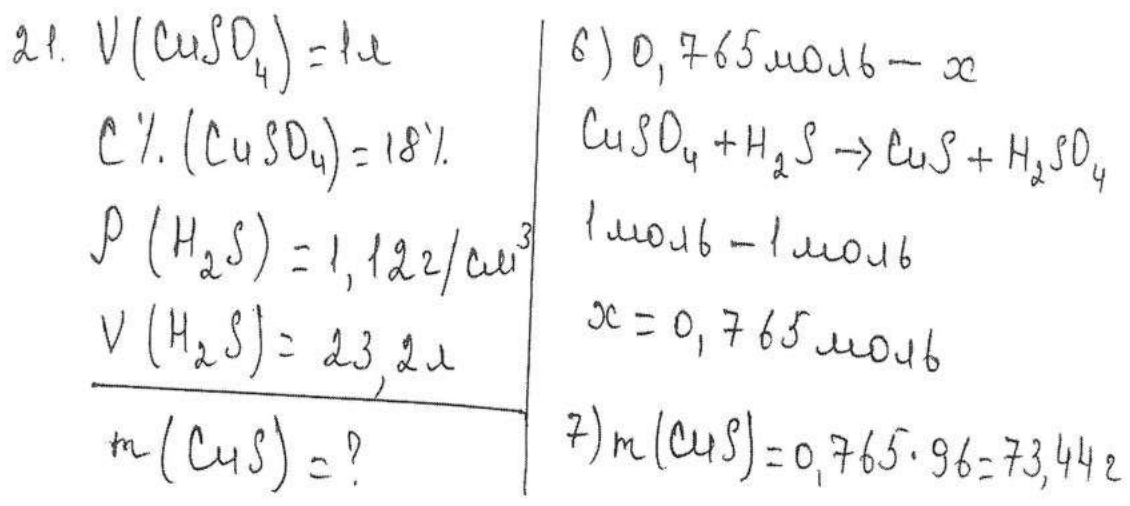 21. V(CuSO₄) = 1л
C%.(CuSO₄) = 18%.
ρ(H₂S) = 1,12г/см³
V(H₂S) = 23,2л
m(CuS) = ?
6) 0,765моль – x
CuSO₄ + H₂S → CuS + H₂SO₄
1моль – 1моль
x = 0,765моль
7) m(CuS) = 0,765 · 96 = 73,44г